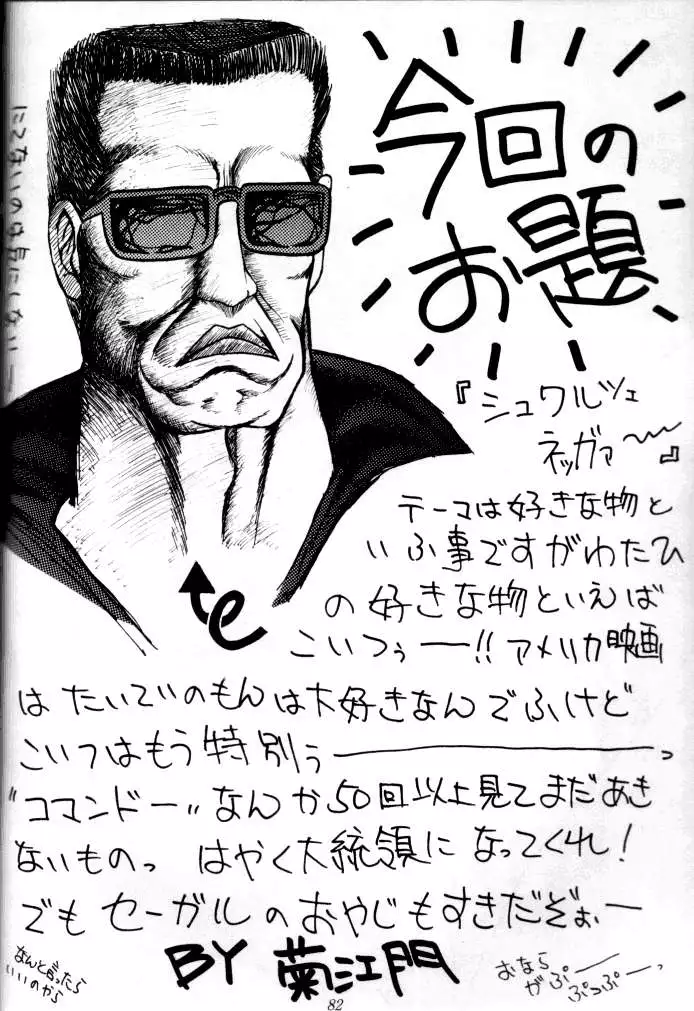 今回の
お題
『シュワルツェ
ネッガァ〜』
テーマは好きな物と
いふ事ですがわたひ
の好きな物といえば
こいつぅー!!アメリカ映画
はたいていのもんは大好きなんでふけど
こいつはもう特別ぅーーっ
"コマンドー"なんか50回以上見てまだあき
ないものっ はやく大統領になってくれ!
でもセーガルのおやじもすきだぞぉー
BY 菊江門
なんと言ったら
いいのやら
おなら
がぷー
ぷっぷーっ
にてないのは気にしないー
82